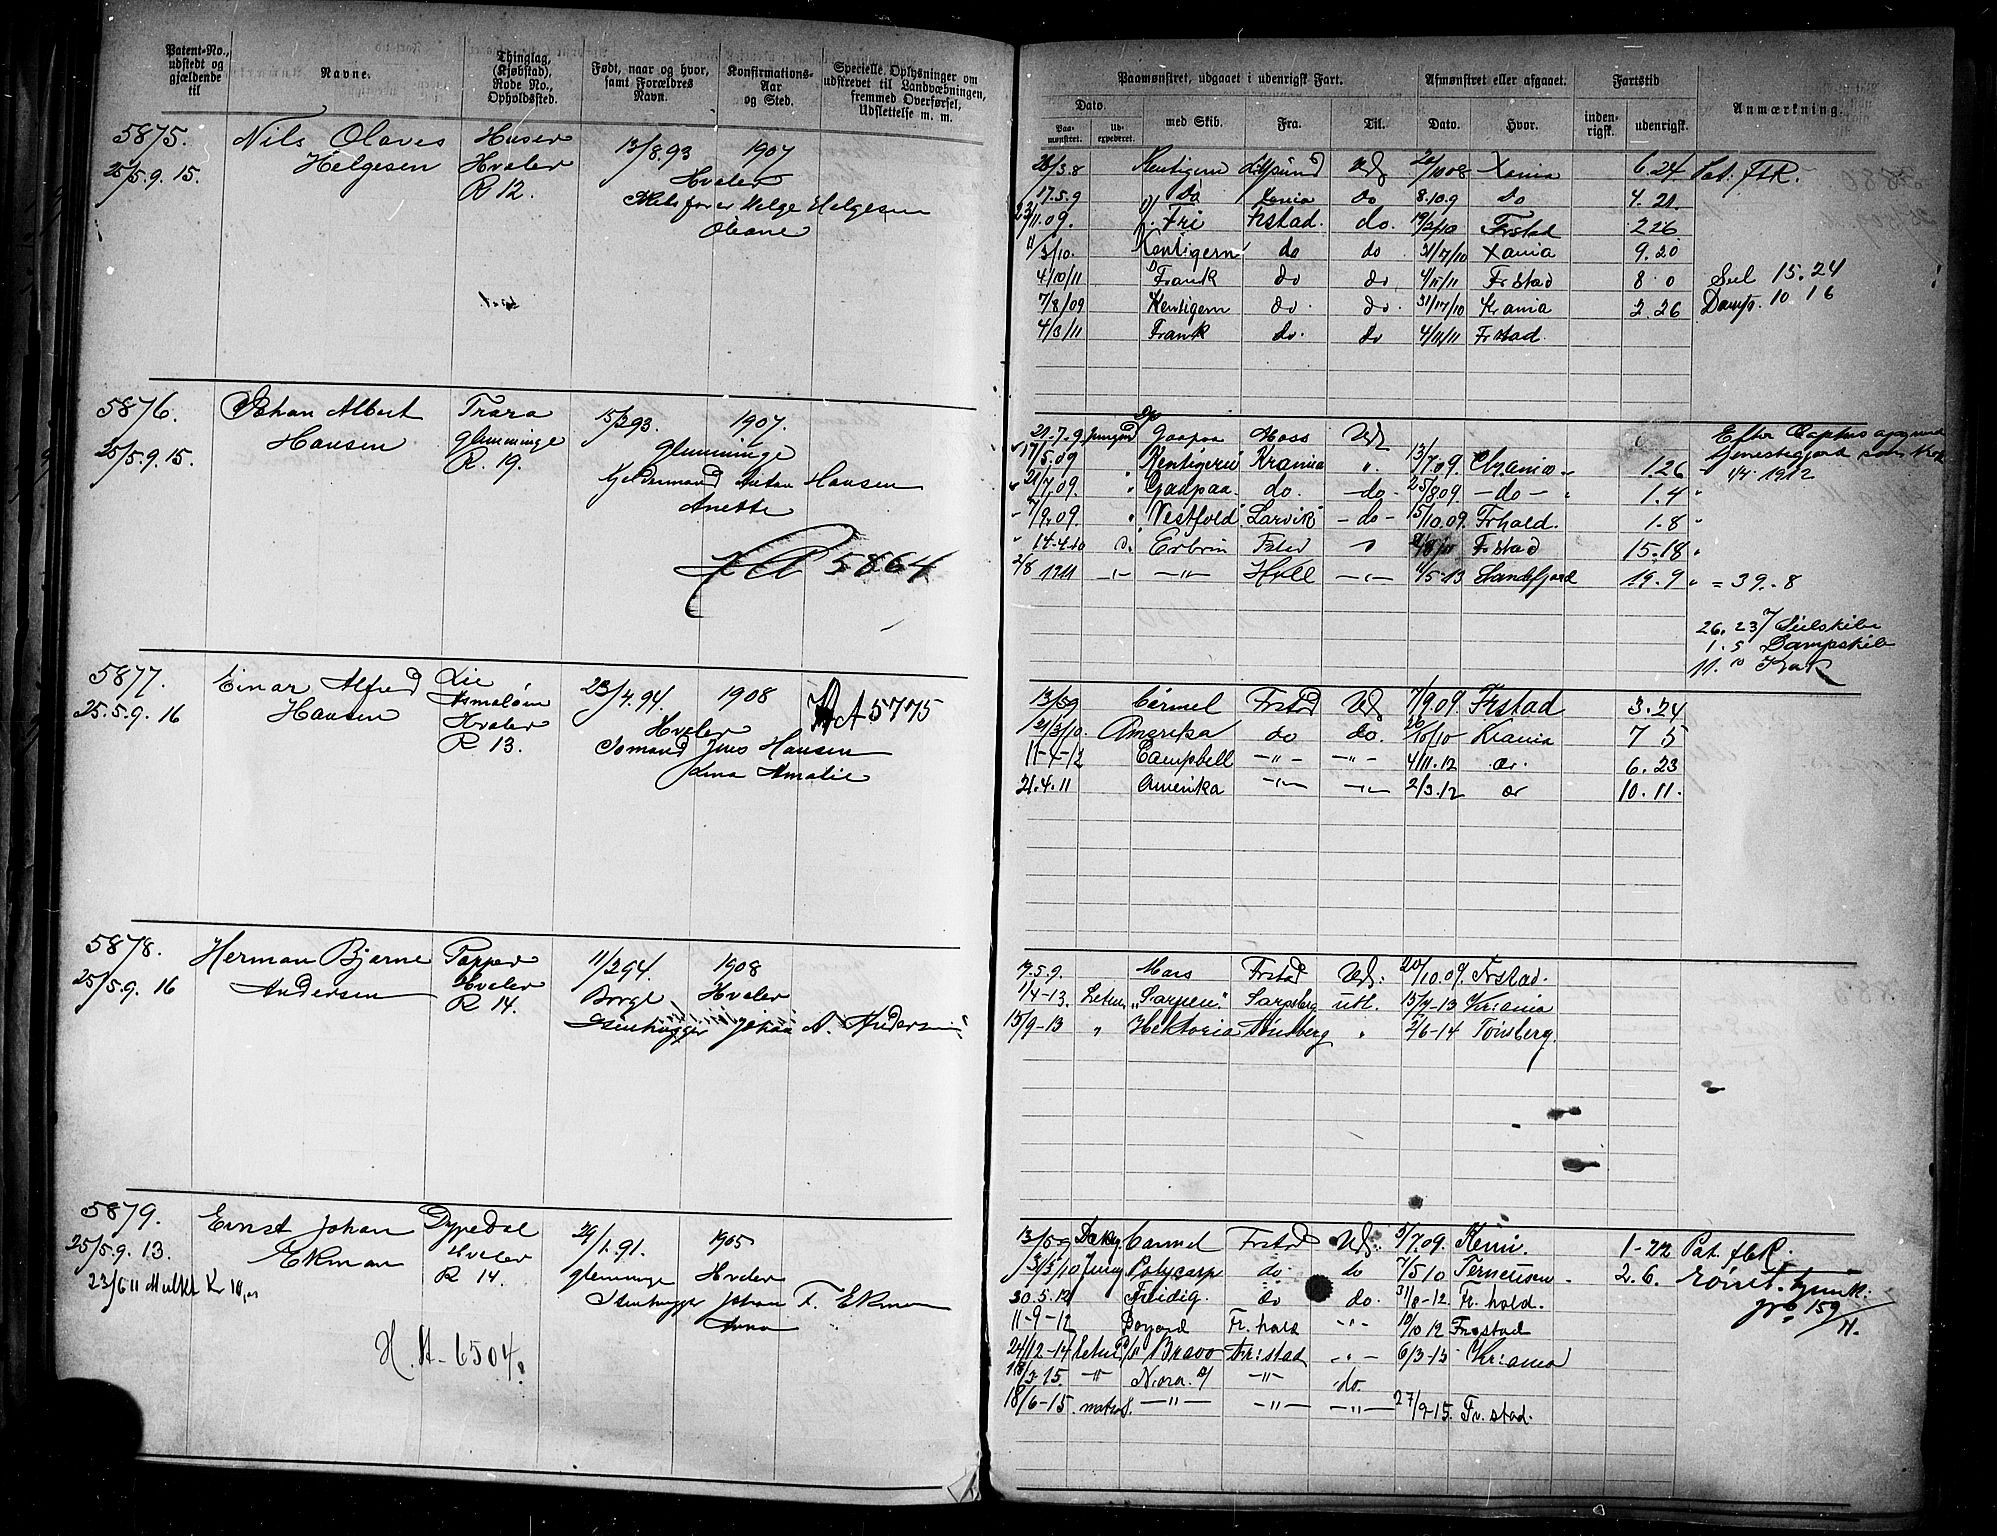 Patent-No., udstedt og gjældende til
Navne.
Thinglag, (Kjøbstad), Rode No., Opholdssted.
Født, naar og hvor, samt Forældres Navn.
Konfirmations-Aar og Sted.
Specielle Oplysninger om udskrevet til Landvæbningen, fremmed Overførsel, Udslettelse m. m.
Paamønstret, udgaaet i udenrigsk Fart.
Afmønstret eller afgaaet.
Fartstid
Anmærkning.
Dato.
Paamønstret.
Udexpederet.
med Skib.
Fra.
Til.
Dato.
Hvor.
indenrigsk.
udenrigsk.
5875. Nils Olaves Huser 13/8.93 1907
25/5.9.15. Helgesen Hvaler Hvaler
R 12. Helge Helgesen
Oleane
28/3.8 Kentigern Ud 20/10 08 Xania 6.24 Pat. FtR.
17.5.9 Do Xania do 8.10.9 do 4.21
23/11.09. Fri Frstad. do. 19/2/10 Frstad 2 26
11/3/10. Kentigern do do 31/7/10 Xania 9.20
4/10/11 Frank do do 4/11/11 Frstad 8 0 Seil 15.24
7/8/09 Kentigern do. do. 31/7/10 Krania 2.26 Damp. 10 16
4/3/11 Frank do. do 4/11/11 Frstad.
5876. Johan Albert Trara 15/2 93. 1907.
25/5.9.15. Hansen Glemminge Glemminge
R. 19. Anton Hansen
Anette
HA 5864
21.7.9 Gaapaa Moss Ud
17/5.09 Kentigern Krania 13/7.09. Chrania 1.26
21/7.09. Gaapaa. do. -do- 25/8 09. -do- 1.4
7/9.09. Vestfold Larvik -do- 15/10.09. Frhald. 1.8
14.4.10 Erbrin Fstad 15.18
2/8 1911 -"- Hull -"- 5.13 Sandefjord 19.9 = 39.8
1/4 1912
26.23 Seilskibe
1.5 Dampskib
11.10 Kok
5877. Einar Alfred Lie 23/4.94. 1908 HA 5775
25.5.9.16 Hansen Asmaløen Hvaler
Hvaler Jens Hansen
R 13. Amalie
13/5 9 Carmel Frstad Ud. 7/9.09. Frstad 3.24
21/3/10. Amerika do do. /10/10 Krania 7 5
11-4-12 Campbell -"- -"- 4/11.12 6.23
21.4.11 Amerika -"- -"- 2/3.12 10.11.
5878. Herman Bjarne Papper 11/2 94. 1908
25/5.9.16 Andersen Hvaler Borge Hvaler
R 14. Stenhugger Johan A. Andersen
17.5.9. Mars Frstad Ud. 20/10.09. Frstad.
1/4-13. Letm. "Sarpen" Sarpsberg utl. 15/7-13 Kr:ania
13/9-13 " Hektoria Tønsberg 2/6-14 Tønsberg.
5879. Ernst Johan Dypedal 29/1.91. 1905
25/5.9.13. Ekman Hvaler Glemminge Hvaler
23/6 11 Mulkt Kr 10,00 R 14. Stenhugger Johan F. Ekman
Anna
H.A- 6504.
13/5 9 Carmel Frstad Ud. 5/7.09. Kemi. 1-22 Pat. FtR.
3/3/10 Jung Polycarp do do 7/5 10 Terneusen 2.6.
30.5.12 Freidig. do do. 31/8-12. Fr.hald. 159/11.
11-9-12 Fr.hald -"- 10/10 12 Frstad
24/12-14 Letm. Bravo Fr:stad -"- 6/3-15 Kr:ania
18/3-15. -"- Nora. -"- do.
18/6-15. matros. -"- -"- -"- 27/9-15. Fr.stad.